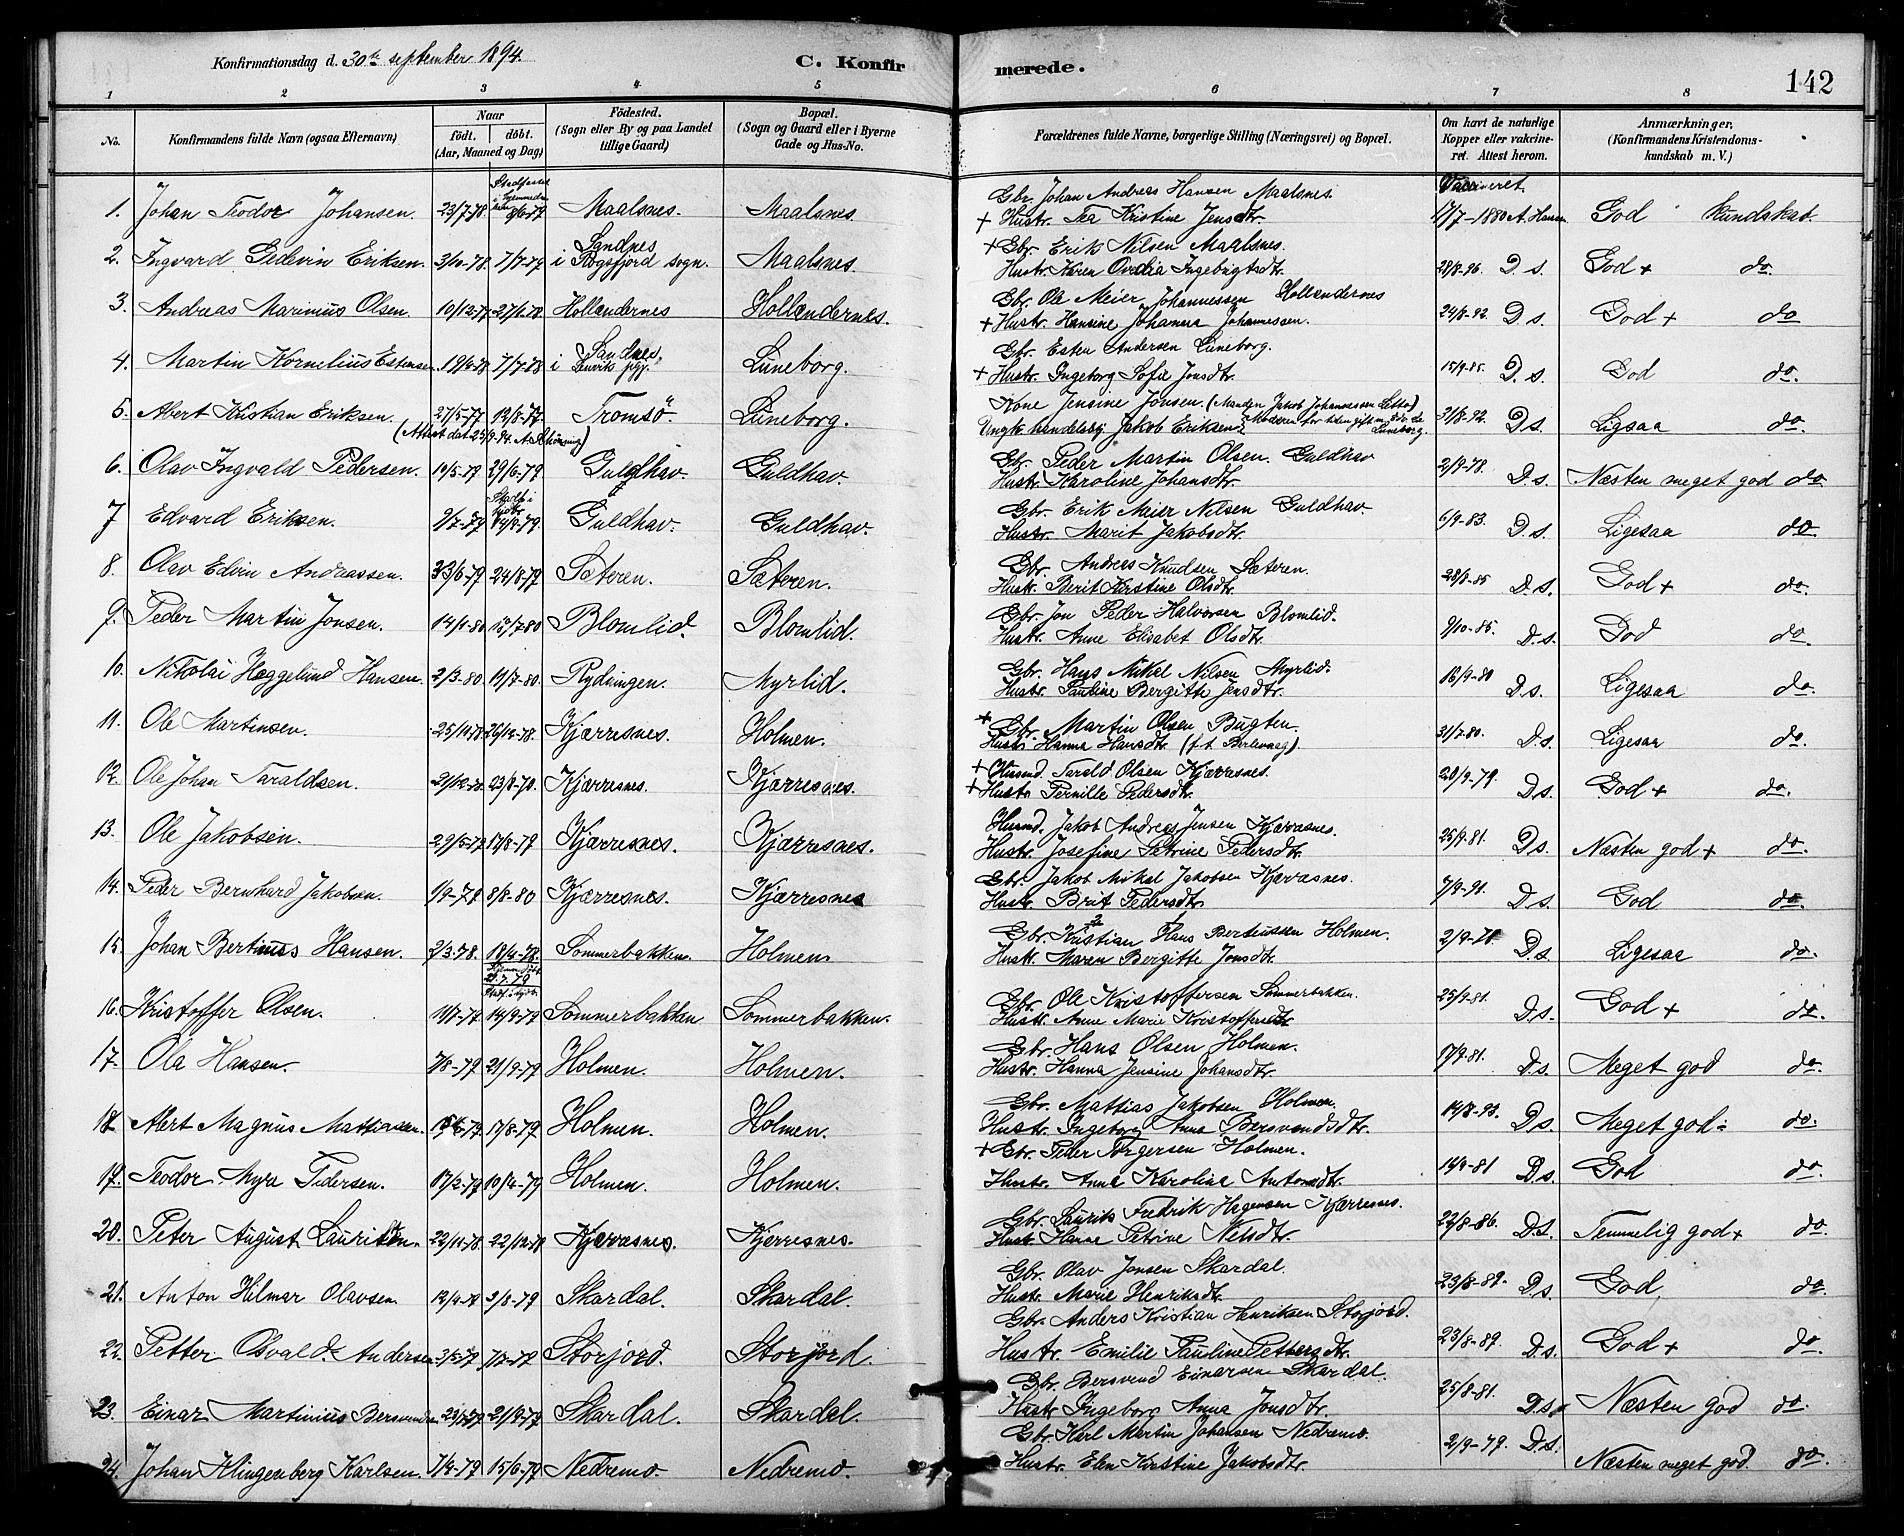 Konfirmationsdag d. 30te september 1894.
C. Konfirmerede.
142
1 2 3 4 5 6 7 8
No.
Konfirmandens fulde Navn (ogsaa Efternavn)
Naar
födt. döbt.
(Aar, Maaned og Dag)
Födested.
(Sogn eller By og paa Landet
tillige Gaard)
Bopæl.
(Sogn og Gaard eller i Byerne
Gade og Hus-No.
Forældrenes fulde Navne, borgerlige Stilling (Næringsvei) og Bopæl.
Om havt de naturlige
Kopper eller vakcine-
ret. Attest herom.
Anmærkninger.
(Konfirmandens Kristendoms-
kundskab m. V.)
1. Johan Teodor Johansen. 23/7-78. Maalsnes. Maalsnes.
Gbr. Johan Andreas Hansen Maalsnes.
+ Hustr. Tea Kristine Jensdtr.
Vaccineret
17/7-1880 A. Hansen God kundskab.
2. Ingvard Gedevin Eriksen. 3/10-78. 7/7-79 Sandnes
i sogn. Maalsnes.
+ Gbr. Erik Nilsen Maalsnes.
Hustr. Karen Ovedia Ingebrigtsdtr. D. s. God + do.
3. Andreas Marinius Olsen. 10/12-77 27/1-78 Hollændernes Hollændernes.
Gbr. Ole Meier Johannessen Hollændernes
+ Hustr. Hansine Johanna Johannessen. 24/8-92. D. s. God + do
4. Martin Kornelius Estensen 19/4-78 7/7-78 i Sandnes,
Lenviks pgj. Lüneborg.
Gbr. Esten Andersen Lüneborg.
+ Hustr. Ingeborg Sofie Jonsdtr. 15/9-85. D. s. God do.
5. Abert Kristian Eriksen. 27/5-77 12/8-77 Tromsö Lüneborg.
Kone Jensine Jonsen. (Manden Jakob Johannessen
Ungk. Jakob Eriksen. 31/8-92. D. s. Ligsaa do.
6. Olav Ingvald Pedersen. 10/5-79 29/6-79 Guldhav. Guldhav.
Gbr. Peder Martin Olsen. Guldhav
Hustr. Karoline Johansdtr. 2/9-78. D s. Næsten meget god do
7 Edvard Eriksen. 9/7-79 14/9-79 Guldhav. Guldhav.
Gbr. Erik Meier Nilsen Guldhav.
Hustr. Marit Jakobsdtr. 6/9-83. D. s. Ligesaa do
8. Olav Edvin Andreassen. 24/8-79 Sæteren. Sæteren.
Gbr. Andreas Knudsen Sæteren.
Hustr. Berit Kirstine Olsdtr. 28/8-85 D s. God + do.
9. Peder Martin Jonsen. 14/1-80 Blomlid. Blomlid.
Gbr. Jon Peder Halvorsen Blomlid.
Hustr. Anne Elisabet Olsdtr. 9/10-85. D. s. God do
10. Nikolai Hæggelund Hansen. 2/3-80. 19/7-80. Rydningen. Myrlid.
Gbr. Hans Mikal Nilsen Myrlid.
Hustr. Pauline Bergitte Jensdtr. 16/9-80 D s. Ligesaa do.
11. Ole Martinsen. 25/10-78 26/12-78. Kjærresnes. Holmen.
+ Gbr. Martin Olsen Bugten.
Hustr. Hanna Hansdtr. (f. t. Berlevaag). 31/7-80. D. s. Ligesaa do.
12. Ole Johan Taraldsen. 23/8-78. Kjærresnes. Kjærresnes.
+ Husmd. Tarald Olsen Kjærresnes.
+ Hustr. Pernille Pedersdtr. 20/9-79. D s. God + do.
13. Ole Jakobsen. 29/5-79 17/8-79 Kjærresnes. Kjærresnes.
Husmd. Jakob Andreas Jensen Kjærresnes.
Hustr. Josefine Petrine Pedersdtr. 25/9-81. D s. Næsten god + do.
14. Peder Bernhard Jakobsen. 1/9-79 8/8-80 Kjærresnes. Kjærresnes
Gbr. Jakob Mikal Jakobsen Kjærresnes.
Hustr. Brit Pedersdtr 7/9-91. D s. God do.
15. Johan Bertinus Hansen. 2/3-78. 18/4-78. Sommerbakken Holmen
Gbr. Kristian Hans Bertinssen Holmen.
Hustr. Maren Bergitte Jonsdtr. 2/9-78. D s. Ligesaa do.
16. Kristoffer Olsen. 11/7-79 14/9-79 Sommerbakken Sommerbakken.
Gbr. Ole Kristoffersen Sommerbakken.
Hustr. Anne Marie Kristoffersdtr 25/9-81. D. s. God + do.
17. Ole Hansen. 7/8-79 21/9-79 Holmen. Holmen.
Gbr. Hans Olsen Holmen.
Hustr. Hanna Jensine Johansdtr. 17/9-81. D. s. Meget god do.
18 Abert Magnus Mattiassen. 17/8-79 Holmen. Holmen.
Gbr. Mattias Jakobsen Holmen.
Hustr. Ingeborg Anna Bersvendsdtr. 14/8-93. D s. Meget god do.
19. Teodor Myra Pedersen. 17/2-79 10/4-79 Holmen. Holmen.
+ Gbr. Peder Torgersen Holmen.
Hustr. Anna Karolina Antonsdtr. D s. God do.
20. Peter August Lauritsen. 22/11-78. 22/12-78 Kjærresnes. Kjerresnes.
Gbr. Laurits Fredrik Hagensen Kjærresnes.
Hustr Hanne Petrine Nelsdtr. 22/8-86. D. s. Temmelig god + do.
21. Anton Hilmar Olavsen. 12/4-79 3/8-79 Skardal. Skardal.
Gbr. Olav Jonsen Skardal.
Hustr. Marie Henriksdtr. 23/8-89. D s. God do.
22. Petter Osvald Andersen Storjord. Storjord.
Gbr. Anders Kristian Henriksen Storjord.
Hustr. Emilie Pauline Petbergdtr. 23/8-89. D s. God + do
23. Einar Martinius Bersvendsen 21/9-79 Skardal. Skardal.
Gbr. Bersvend Einarsen Skardal.
Hustr Ingeborg Anna Jonsdtr. 25/8-81. D s. Næsten god do.
24. Johan Klingenberg Karlsen. 7/4-79 15/6-79 Nedremo. Nedremo.
Gbr. Karl Martin Johansen Nedremo.
Hustr. Elen Kirstine Jakobsdtr. 2/9-79. D. s. Næsten meget god. do.